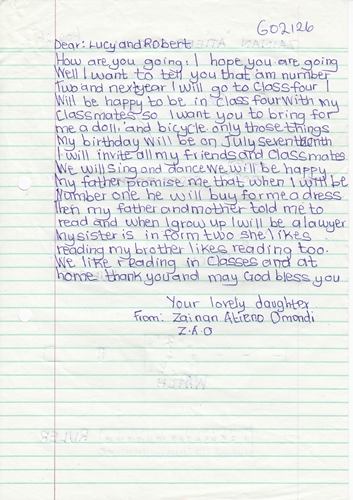 G02126
Dear: Lucy and Robert
How are you going: I hope you are going
Well I want to tell you that am number
Two and next year I will go to Class four I
Will be happy to be in class four With my
Classmates so I want you to bring for
me a doll and bicycle only those things
My birthday will be on July seventeenth
I will invite all my friends and Classmates
We will sing and dance We will be happy
My father promise me that when I will be
Number one he will buy for me a dress
Then my father and mother told me to
read and when I grow up I will be a lawyer
My sister is in form two she likes
reading my brother likes reading too.
We like reading in Classes and at
home thank you and may God bless you
Your lovely daughter
From: Zainan Atieno Omondi
Z.A.O
RULER